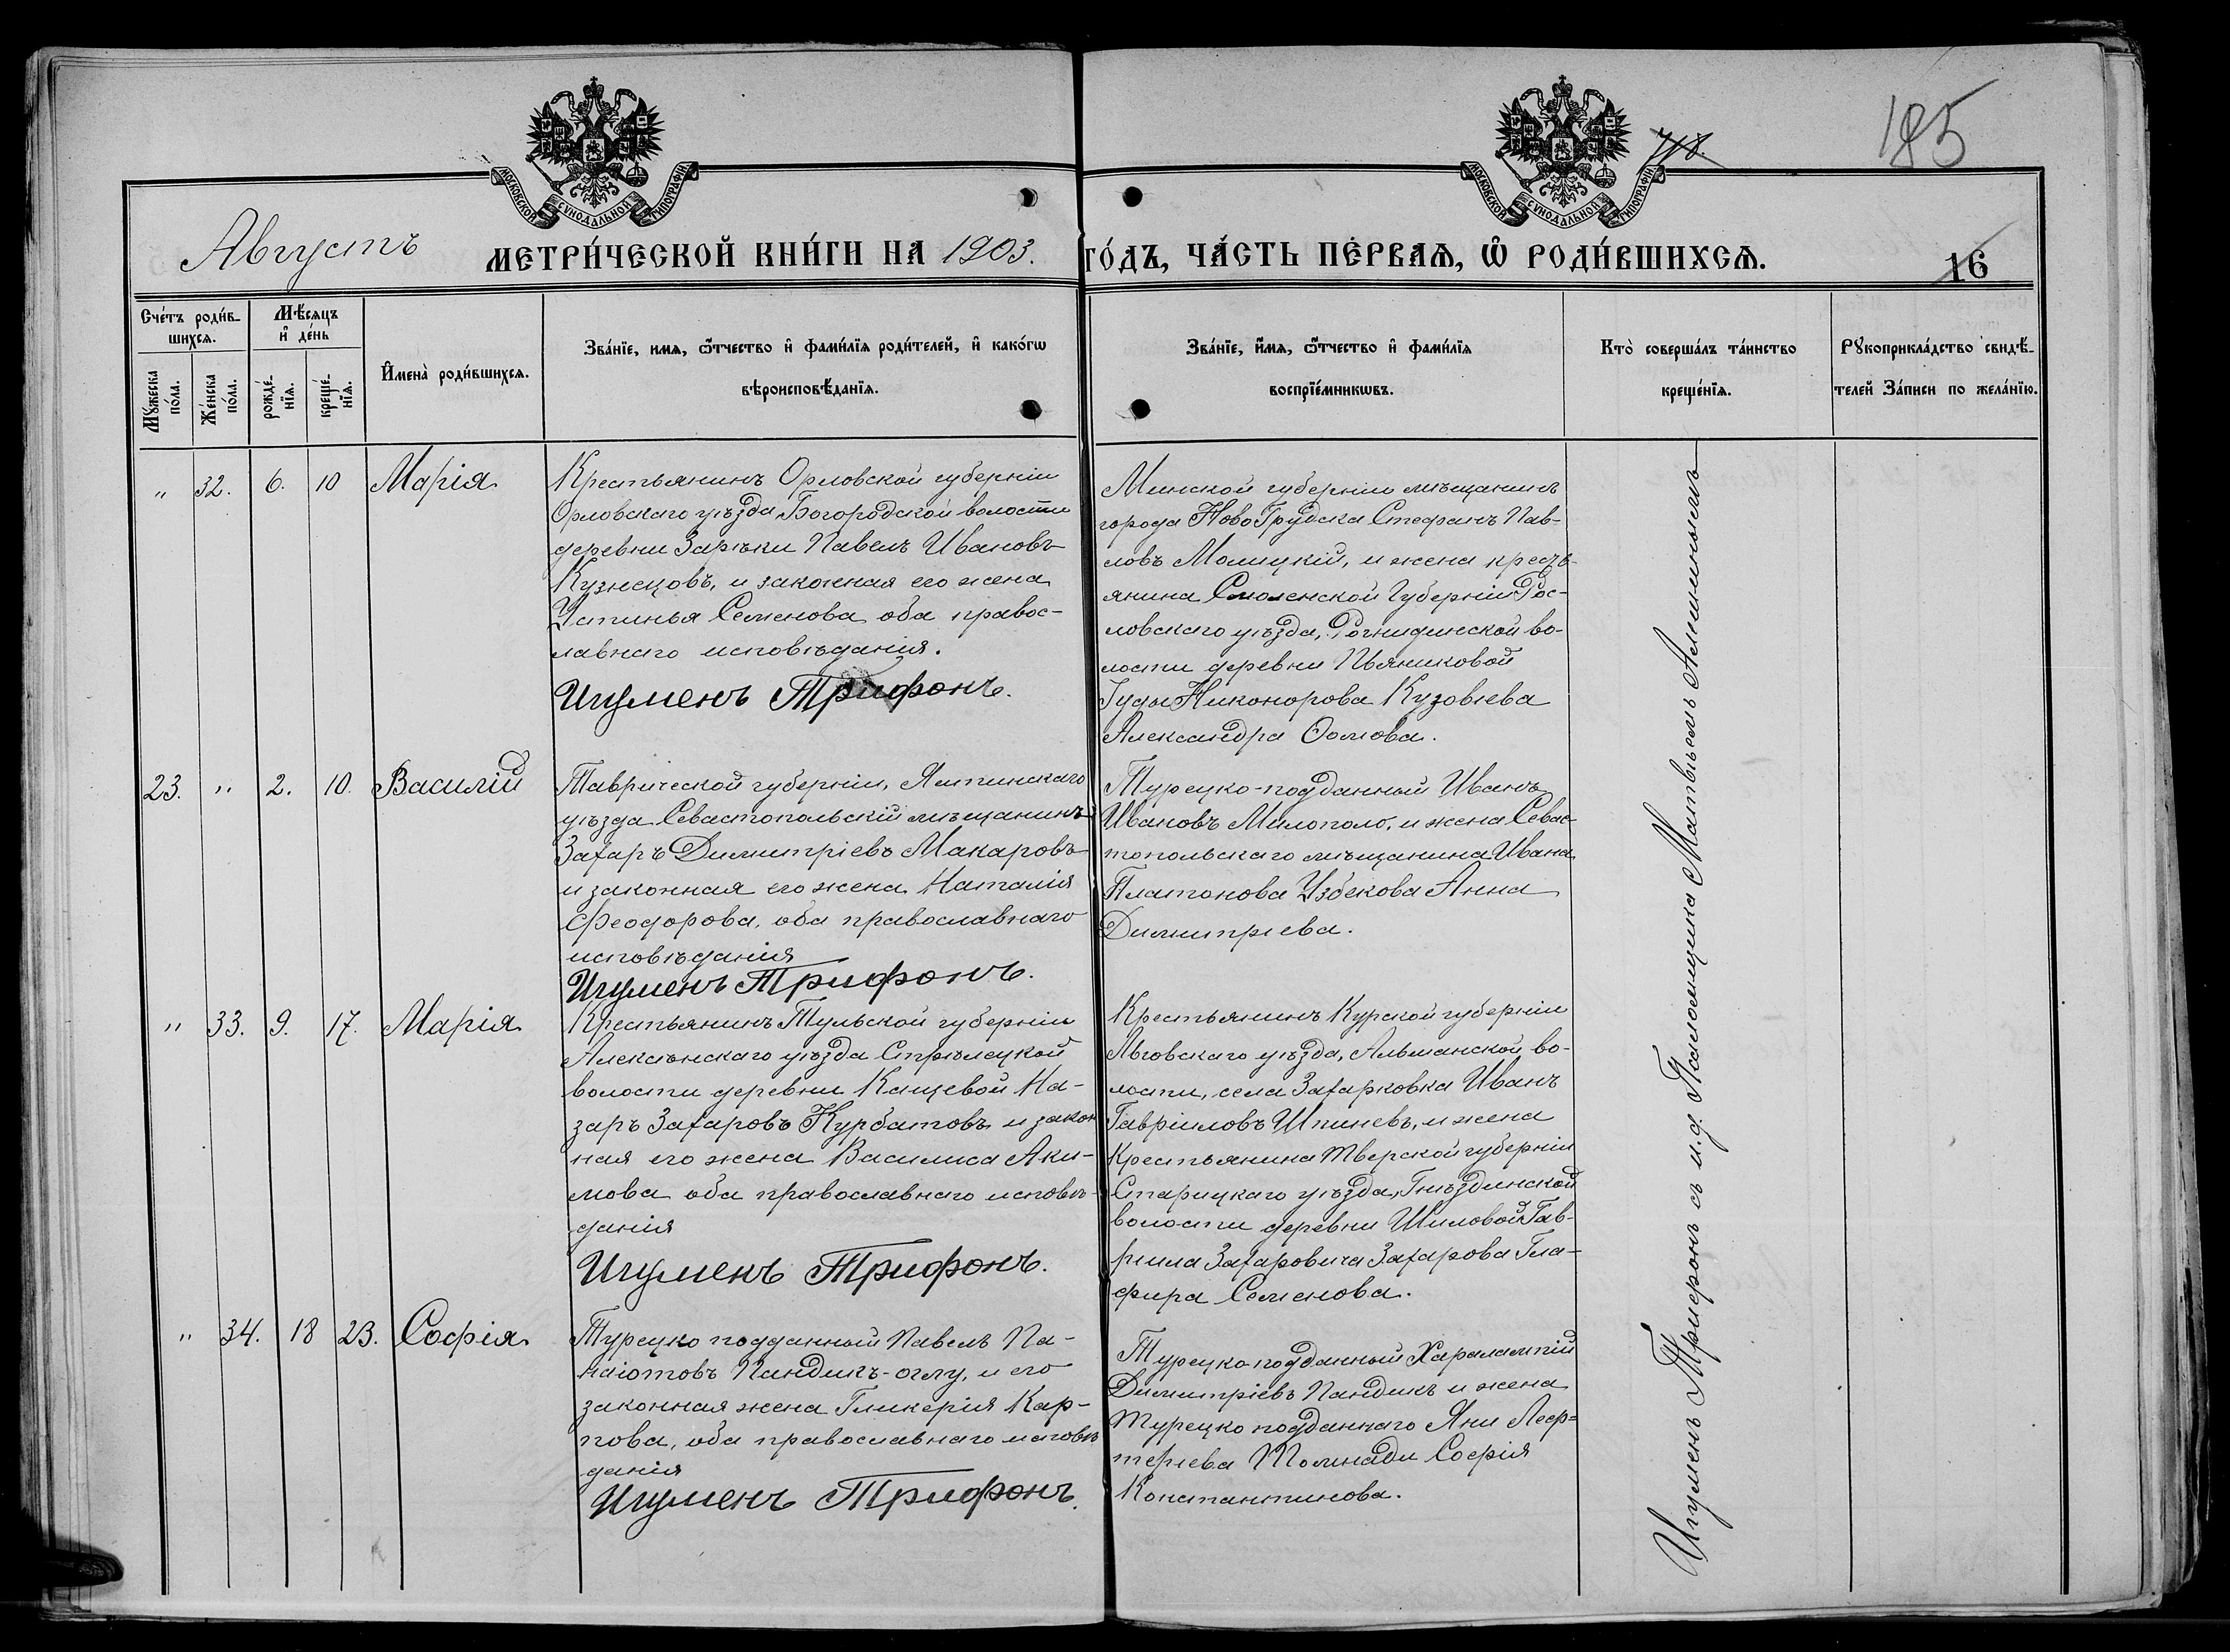 185
718.
МОСКОВСКОЙ СѴНОДАЛЬНОЙ ТИПОГРАФІИ
МОСКОВСКОЙ СѴНОДАЛЬНОЙ ТИПОГРАФІИ
Августъ МЕТРИ́ЧЕСКОЙ КНИ́ГИ НА 1903. ГО́ДЪ, ЧА́СТЬ ПЕ́РВАѦ, Ѡ҆ РОДИ́ВШИХСѦ.
16
Сче́тъ роди́в-
шихсѧ.
Мꙋ́жеска
по́ла.
Же́нска
по́ла.
Мѣ́сѧцъ
и҆ де́нь
рожде́-
нїѧ.
креще́-
нїѧ.
И҆мена̀ роди́вшихсѧ.
Зва́нїе, имѧ, ѿтчество и҆ фами́лїѧ роди́телей, и҆ како́гѡ
вѣроисповѣ́данїѧ.
Зва́нїе, и҆́мѧ, ѿтчество и҆ фами́лїѧ
воспрїе́мникѡвъ.
Кто̀ соверша́лъ та́инство
креще́нїѧ.
Рꙋкоприкла́дство свидѣ́-
телей За́писи по жела́нїю.
" 32. 6. 10 Марія
Крестьянинъ Орловской губерніи
Орловскаго уѣзда Богородской волости
деревни Зарѣки Павелъ Ивановъ
Кузнецовъ, и законная его жена
Устинья Семенова оба правос-
лавнаго исповѣданія.
Игуменъ Трифонъ.
Минской губерніи мѣщанинъ
города НовоГрудска Стефанъ Пав-
ловъ Молицкій, и жена кресть-
янина Смоленской Губерніи Рос-
ловскаго уѣзда, Рогнидинской во-
лости деревни Пьяниковой
Іуды Никонорова Кузовлева
Александра Ѳомова.
23. " 2. 10. Василій
Таврической губерніи, Ялтинскаго
уѣзда Севастопольскій мѣщанинъ
Захаръ Димитріевъ Макаровъ
и законная его жена Наталія
Феодорова, оба православнаго
исповѣданія
Игуменъ Трифонъ.
Турецко-подданный Иванъ
Ивановъ Милополо, и жена Севас-
топольскаго мѣщанина Ивана
Платонова Узбекова Анна
Димитріева.
" 33. 9. 17. Марія
Крестьянинъ Тульской губерніи
Алексинскаго уѣзда Стрѣлецкой
волости деревни Кащевой На-
заръ Захаровъ Курбатовъ и закон
ная его жена Василиса Аки-
мова оба православнаго исповѣ-
данія
Игуменъ Трифонъ.
Крестьянинъ Курской губерніи
Льговскаго уѣзда, Альманской во-
лости, села Захарковка Иванъ
Гавріиловъ Шпиневъ, и жена
Крестьянина Тверской губерніи
Старицкаго уѣзда, Гнѣздинской
волости деревни Шиловой Гав-
ріила Захаровича Захарова Гла-
фира Семенова.
" 34. 18 23. Софія
Турецко подданный Павелъ Па-
наіотовъ Пандикъ-оглу, и его
законная жена Гликерія Кар-
пова, оба православнаго исповѣ
данія
Игуменъ Трифонъ.
Турецко подданный Харалампій
Димитріевъ Пандикъ и жена
Турецко подданнаго Яни Леф-
теріева Софія
Константинова.
Игуменъ Трифонъ съ и.д. Псаломщика Матвѣемъ